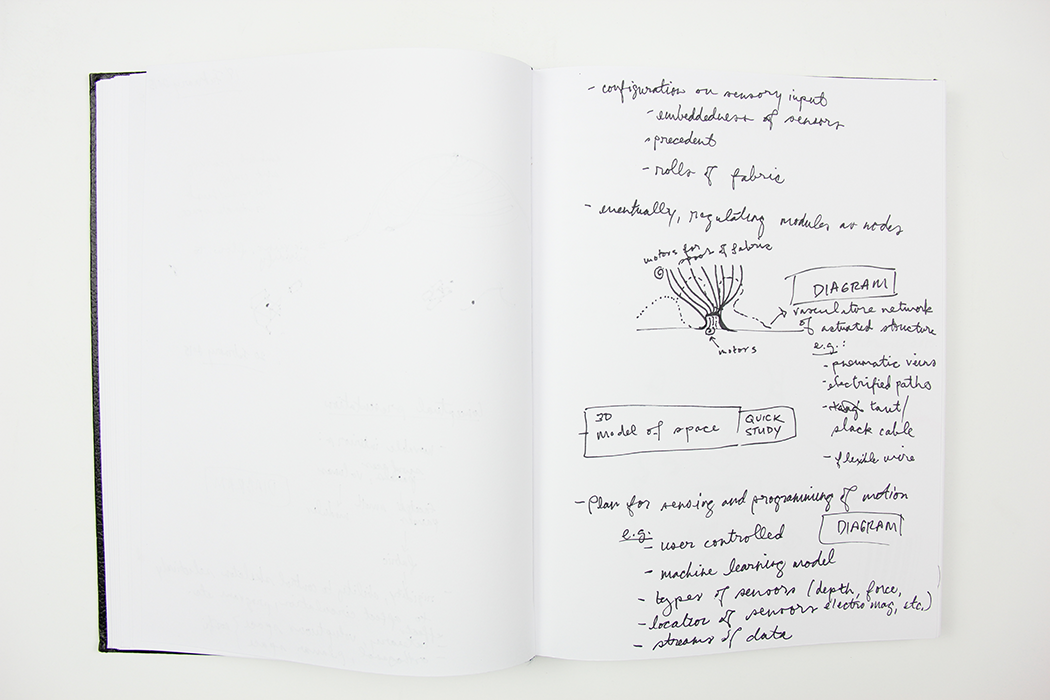 - configuration on sensory input
- embeddedness of sensors
precedent
- rolls of fabric
- eventually, regulating modules as nodes
motors for spool of fabric
DIAGRAM
vasculature network
of actuated structure
motors
e.g.:
- pneumatic veins
- electrified paths
- taut/
slack cable
- flexible wire
3D
Model of space
QUICK
STUDY
- Plan for sensing and programming of motion
DIAGRAM
e.g.
- user controlled
- machine learning model
- types of sensors (depth, force,
electromag, etc.)
- location of sensors
- streams of data